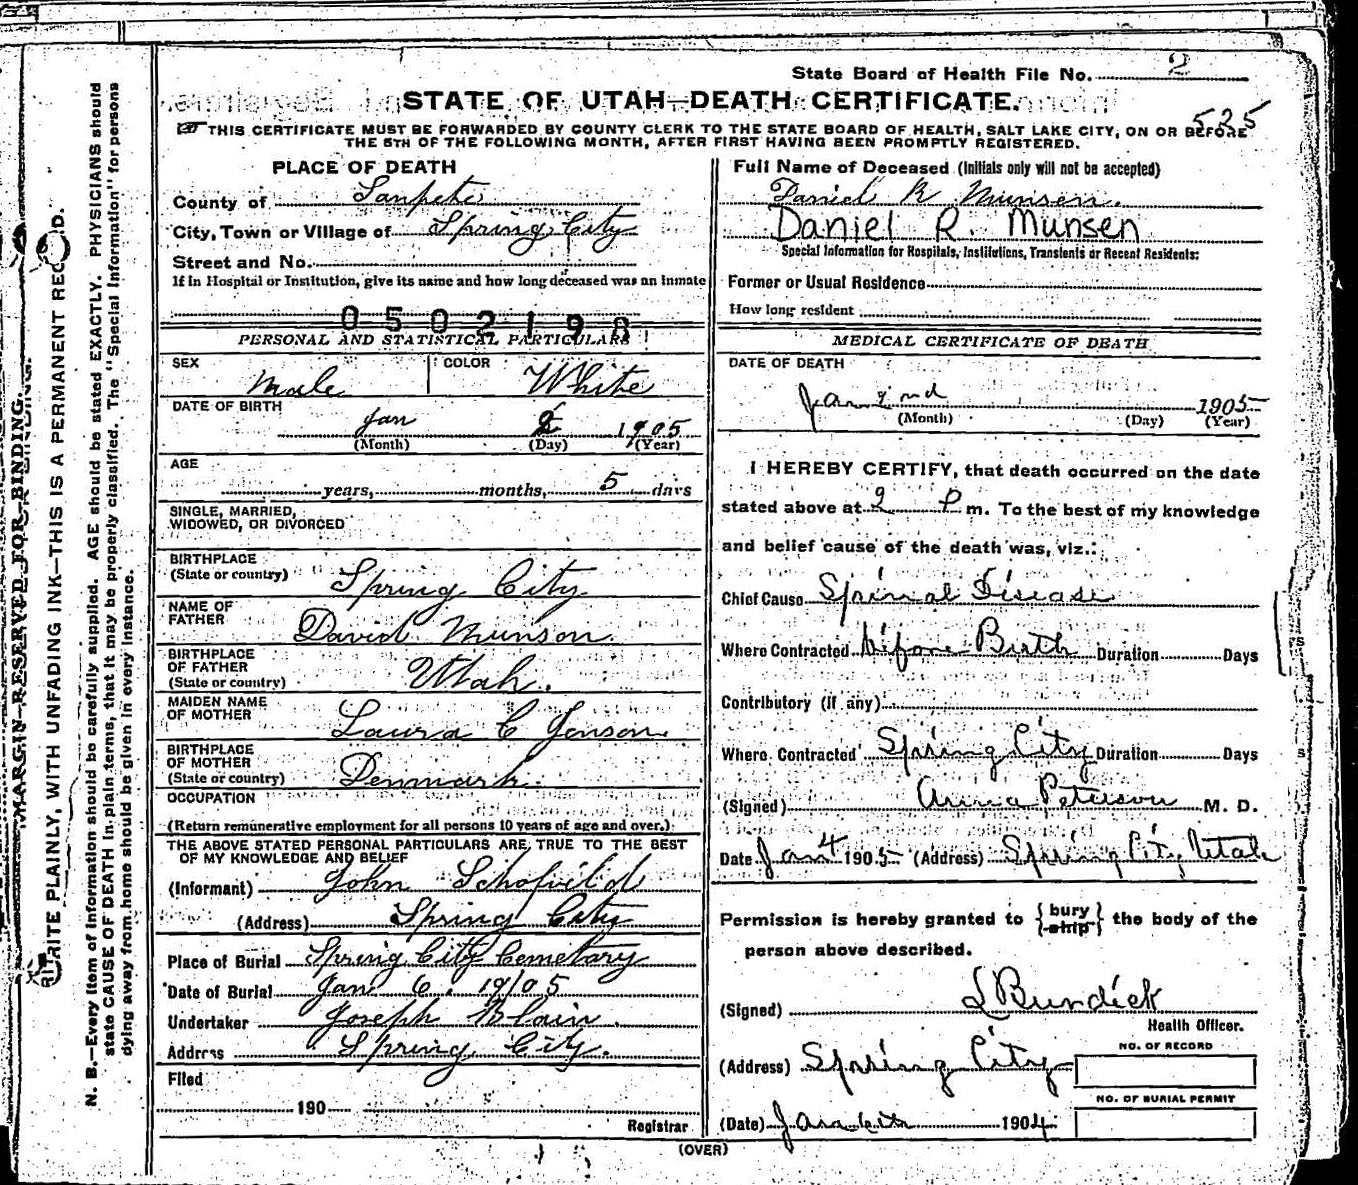 State Board of Health File No. 2
STATE OF UTAH—DEATH CERTIFICATE.
535
THIS CERTIFICATE MUST BE FORWARDED BY COUNTY CLERK TO THE STATE BOARD OF HEALTH, SALT LAKE CITY, ON OR BEFORE
THE 5TH OF THE FOLLOWING MONTH, AFTER FIRST HAVING BEEN PROMPTLY REGISTERED.
PLACE OF DEATH
County of Sanpete
City, Town or Village of Spring City
Street and No.
If in Hospital or Institution, give its name and how long deceased was an inmate
0502198
PERSONAL AND STATISTICAL PARTICULARS
SEX Male COLOR White
DATE OF BIRTH
Jan 1905
(Month) (Day) (Year)
AGE
years, months, 5 days
SINGLE, MARRIED,
WIDOWED, OR DIVORCED
BIRTHPLACE
(State or country) Spring City
NAME OF
FATHER David Munson
BIRTHPLACE
OF FATHER
(State or country) Utah.
MAIDEN NAME
OF MOTHER Laura C Jenson
BIRTHPLACE
OF MOTHER
(State or country) Denmark
OCCUPATION
(Return remunerative employment for all persons 10 years of age and over.)
THE ABOVE STATED PERSONAL PARTICULARS ARE TRUE TO THE BEST
OF MY KNOWLEDGE AND BELIEF
(Informant) John Schofeild
(Address) Spring City
Place of Burial Spring City Cemetary
Date of Burial Jan 6. 1905
Undertaker Joseph Blain.
Address Spring City.
Filed
190
Registrar
Full Name of Deceased (Initials only will not be accepted)
Daniel R Munsen.
Daniel R. Munsen
Special Information for Hospitals, Institutions, Transients or Recent Residents:
Former or Usual Residence
How long resident
MEDICAL CERTIFICATE OF DEATH
DATE OF DEATH
Jan 2nd 1905
(Month) (Day) (Year)
I HEREBY CERTIFY, that death occurred on the date
stated above at 2 P m. To the best of my knowledge
and belief cause of the death was, viz.:
Chief Cause Spinal Disease
Where Contracted Before Birth Duration Days
Contributory (if any)
Where Contracted Spring City Duration Days
(Signed) Annia Peterson M. D.
Date Jan 4 1905 (Address) Spring City Utah
Permission is hereby granted to {bury ship} the body of the
person above described.
(Signed) L Bundick
Health Officer.
(Address) Spring City
NO. OF RECORD
NO. OF BURIAL PERMIT
(Date) Jan 6th 1904
(OVER)
MARGIN RESERVED FOR BINDING.
WRITE PLAINLY, WITH UNFADING INK—THIS IS A PERMANENT RECORD.
N. B.—Every item of information should be carefully supplied. AGE should be stated EXACTLY. PHYSICIANS should
state CAUSE OF DEATH in plain terms, that it may be properly classified. The "Special Information" for persons
dying away from home should be given in every instance.